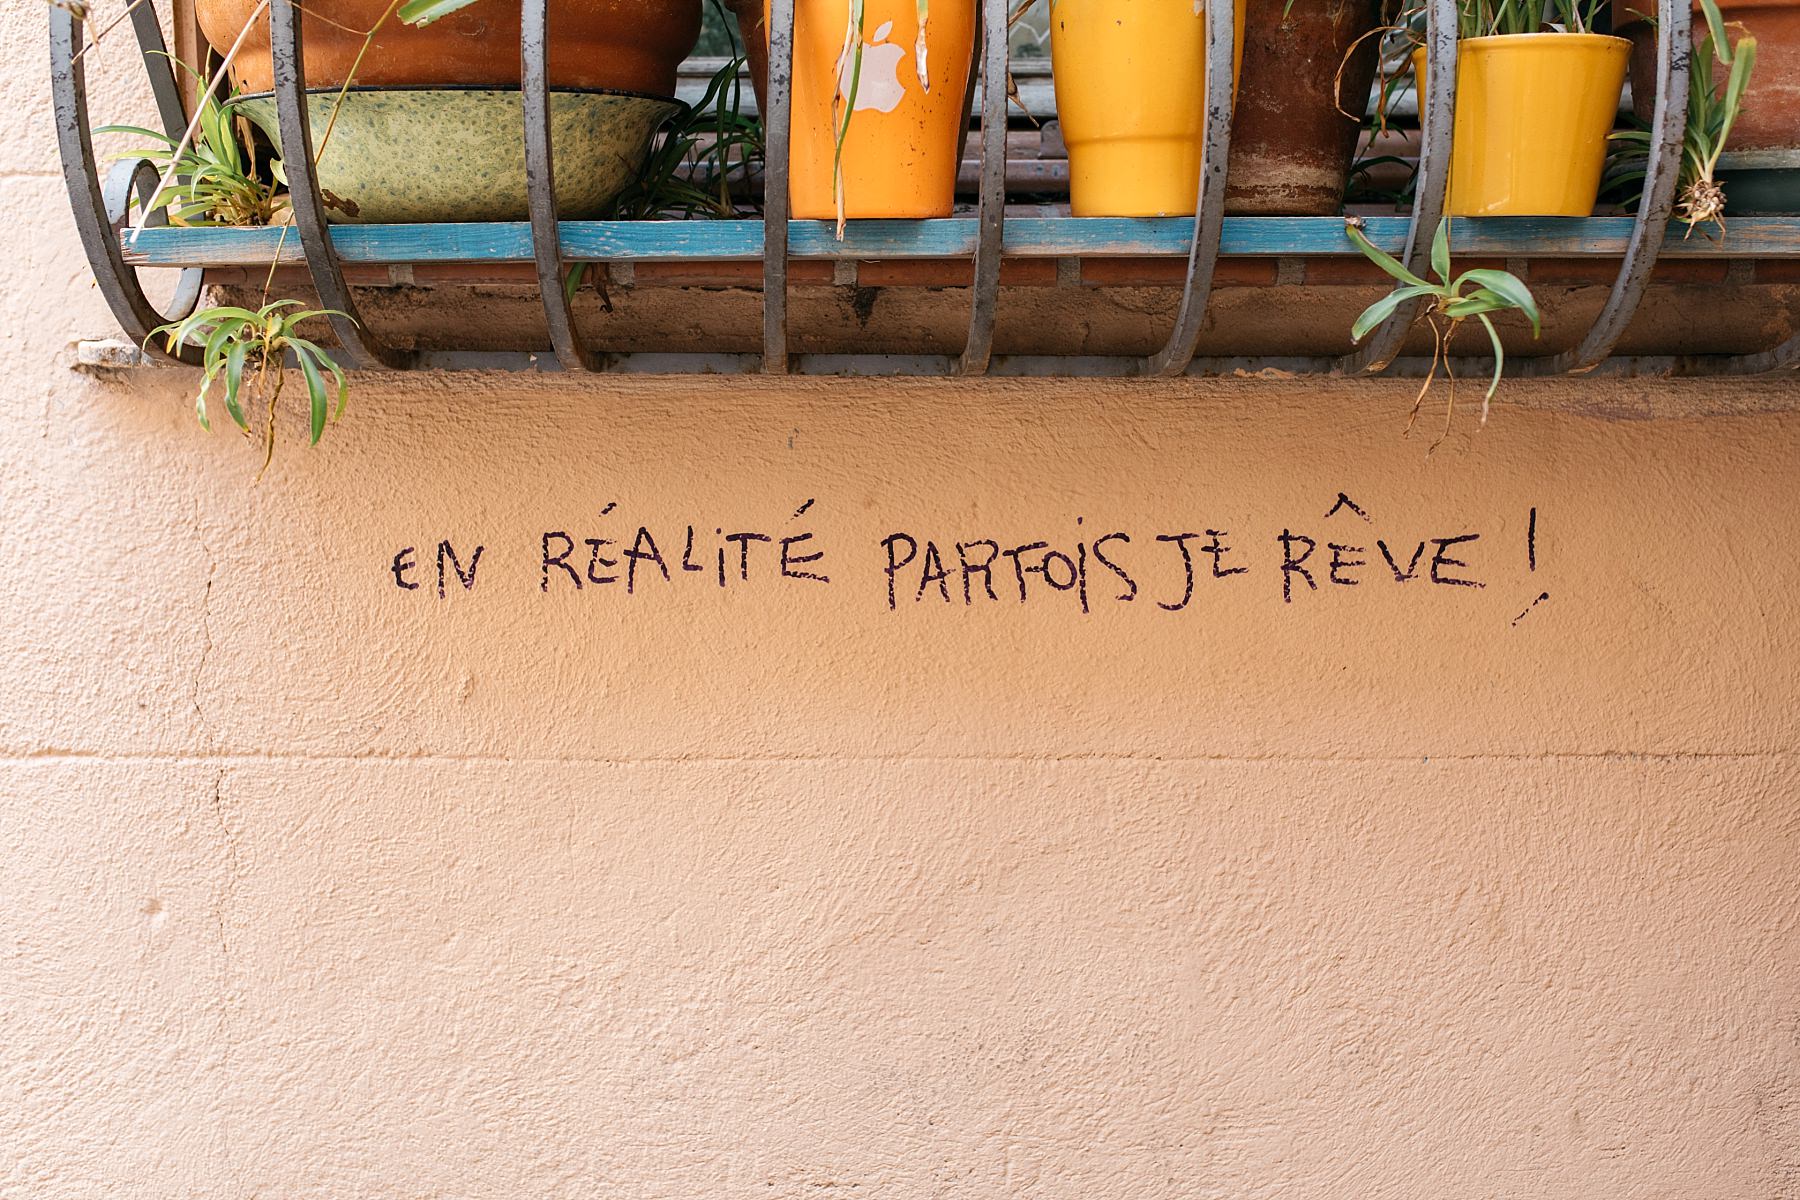 EN RÉALITÉ PARFOIS JE RÊVE !